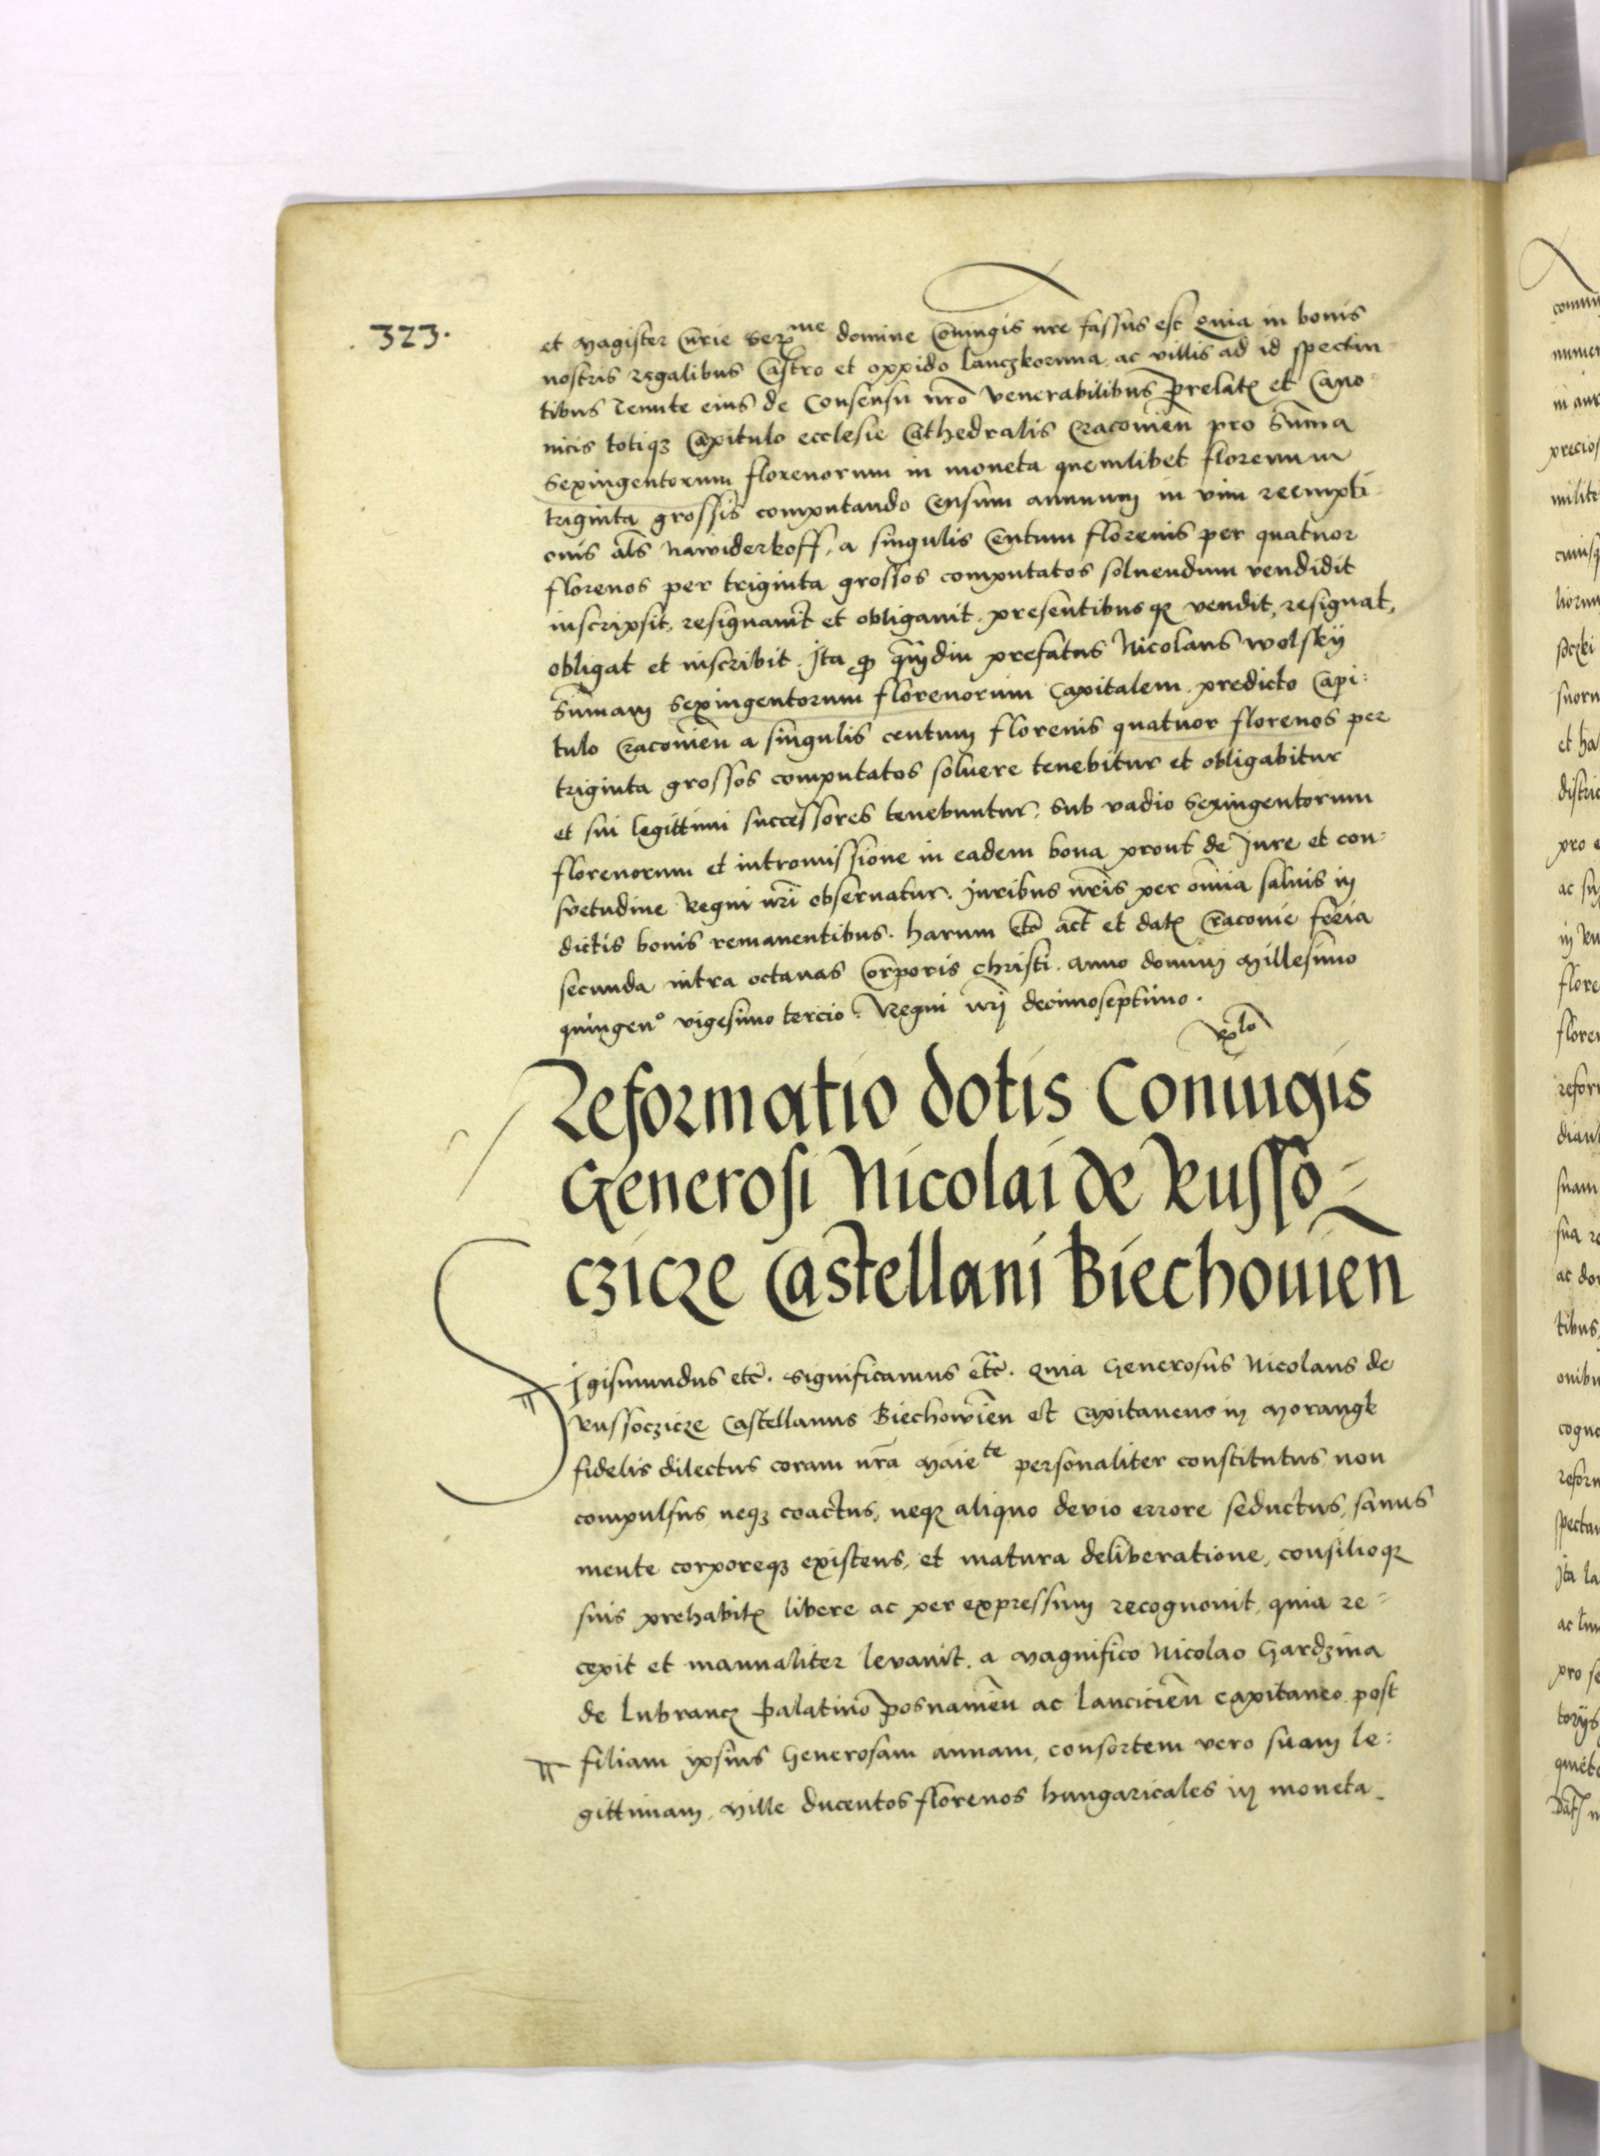 323.
et Magister Curie Ser^me domine Coniugis nre fassus est Quia in bonis
nostris regalibus Castro et oppido lanczkorunna ac villis ad id spectan
tibus Tenute eius de Consensu nro venerabilibus prelat et Cano=
nicis totiqz Capitulo ecclesie Cathedralis Cracovien pro Suma
Sexingentorum florenorum in moneta quemlibet florenum
triginta grossis computando Censum annuum in vim reempti
onis als nawiderkoff, a singulis Centum florenis per quatuor
florenos per triginta grossos computatos soluendum vendidit
inscripsit, resignavit et obligauit. presentibusqz vendit, resignat,
obligat et inscribit. Ita q qmdiu prefatus Nicolaus wolskÿ
Sumam sexingentorum florenorum Capitalem predicto Capi:
tulo Cracovien a singulis centum florenis quatuor florenos per
triginta grossos computatos soluere tenebitur et obligabitur
et sui legittimi successores tenebuntur, sub vadio sexingentorum
florenorum et intromissione in eadem bona prout de Jure et con=
svetudine Regni nri obseruatur. Juribus nris per omnia saluis in
dictis bonis remanentibus. harum etc act et dat Cracovie feria
secunda intra octauas Corporis christi. Anno domini Millesimo
quingen° vigesimo tercio. Regni nrj decimoseptimo.
Reformatio dotis Coniugis
Generosi Nicolai de Russo=
czicze Castellani Biechouien
Sigismundus etc. significamus etc. Quia Generosus Nicolaus de
Russoczicze Castellanus Biechowien et Capitaneus in Morangk
fidelis dilectus coram nra Maie^te personaliter constitutus non
compulsus neqz coactus, neqz aliquo devio errore seductus, sanus
mente corporeqz existens, et matura deliberatione, consilioqz
suis prehabit libere ac per expressum recognouit, quia re=
cepit et manualiter levauit. a Magnifico Nicolao Gardzina
de Lubrancz palatino posnanien ac lancicien capitaneo post
filiam ipsius Generosam annam, consortem vero suam le:
gittimam, Mille ducentos florenos hungaricales in moneta